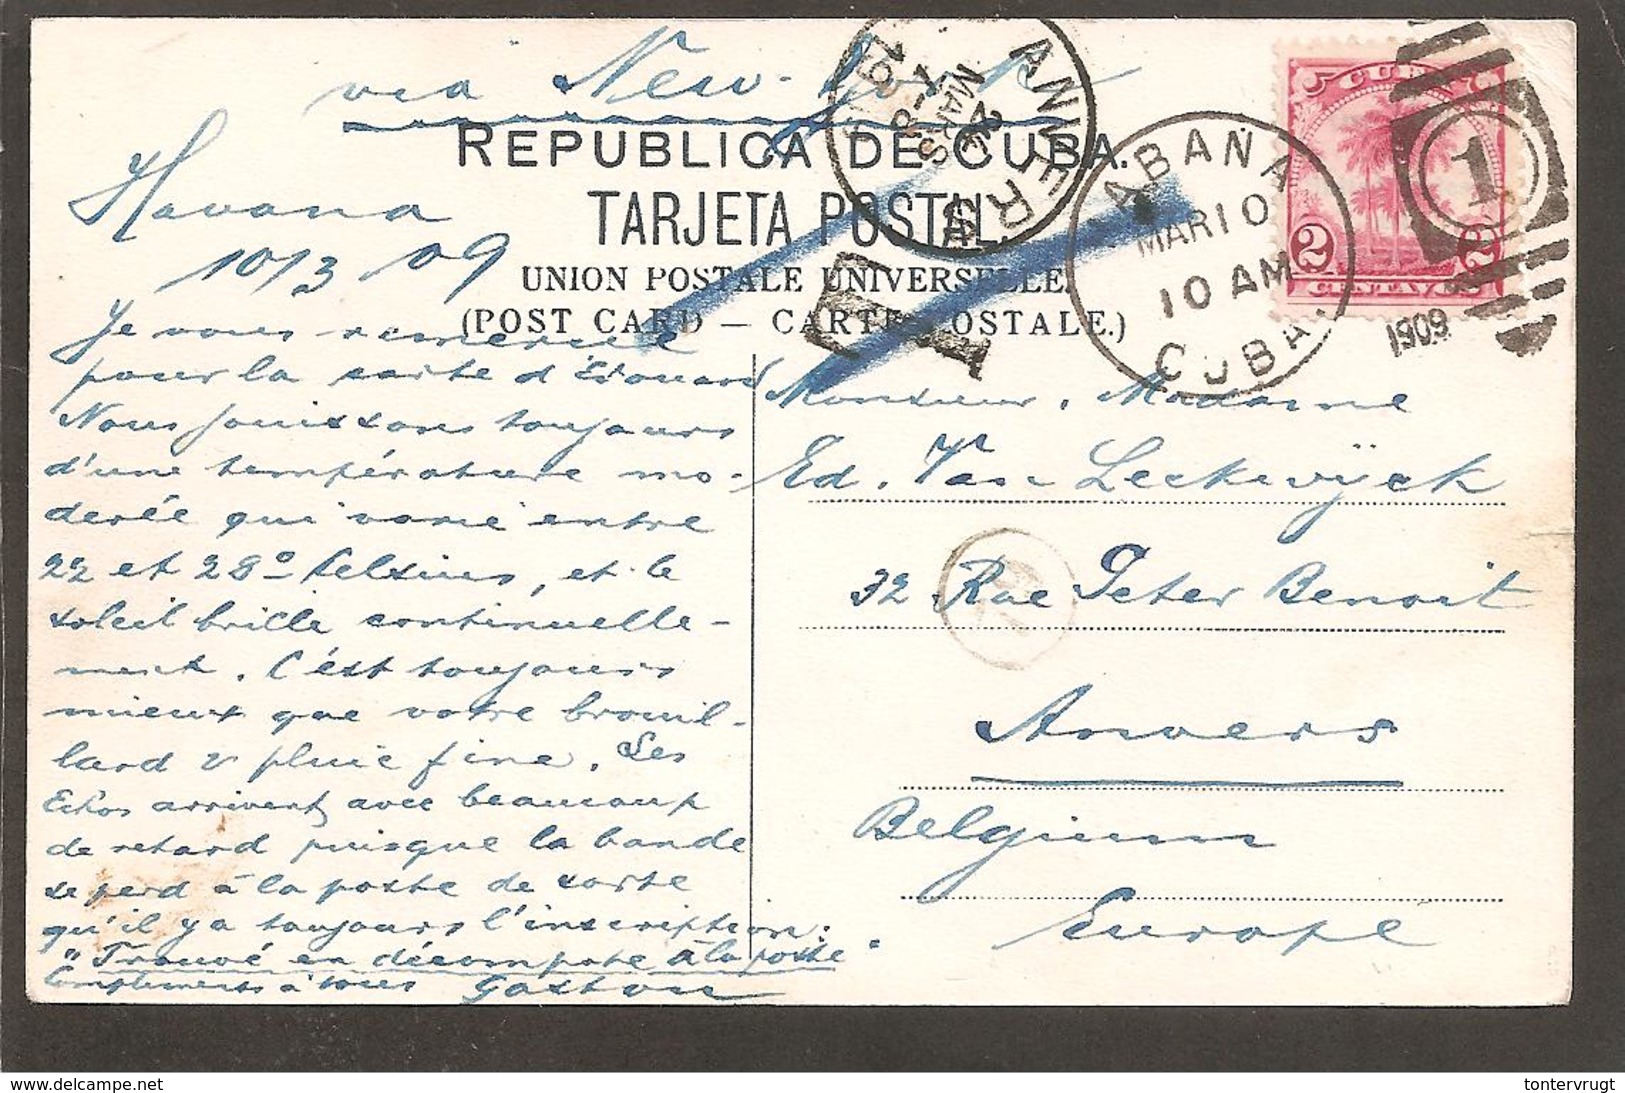 via New-York
REPUBLICA DE CUBA.
TARJETA POSTAL.
UNION POSTALE UNIVERSELLE.
(POST CARD — CARTE POSTALE.)
ANVERS
24
MARS
HABANA
MAR 10
10 AM
CUBA.
1909
1
CUBA
2 2
CENTAVOS
T
Havana
10/3/09
Je vous remercie
pour la carte d'Edouard
Nous jouissons toujours
d'une température mo-
derée qui varie entre
22 et 28° Celsius, et le
soleil brille continuelle-
ment. C'est toujours
mieux que votre brouil-
lard & pluie fine. Les
Echos arrivent avec beaucoup
de retard puisque la bande
se perd à la poste de sorte
qu'il y a toujours l'inscription:
"Trouvé en décompote à la poste"
Compliments à tous Gaston
Monsieur, Madame
Ed. Van Leckwÿck
32 Rue Peter Benoit
Anvers
Belgium
Europe
delcampe.net
tontervrugt